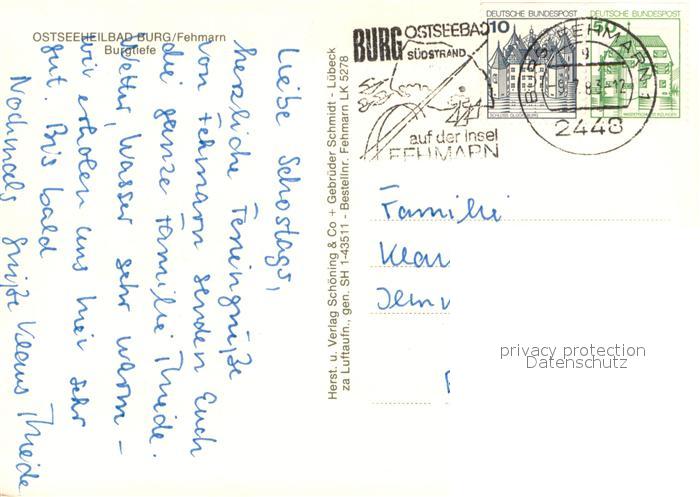 OSTSEEHEILBAD BURG/Fehmarn
Burgtiefe
Liebe Schostags,
herzliche Feriengrüße
von Fehmarn senden Euch
die ganze Familie Thiede.
Wetter, Wasser sehr warm –
wir erholen uns hier sehr
gut. Bis bald
Nochmals Grüße Klaus Thiede
Herst. u. Verlag Schöning & Co + Gebrüder Schmidt - Lübeck
za Luftaufn., gen. SH 1-43511 - Bestellnr. Fehmarn LK 5278
BURG OSTSEEBAD
SÜDSTRAND
auf der Insel
FEHMARN
DEUTSCHE BUNDESPOST
10
SCHLOSS GLÜCKSBURG
DEUTSCHE BUNDESPOST
50
WASSERSCHLOSS INZLINGEN
2448
Familie
Klau
privacy protection
Datenschutz